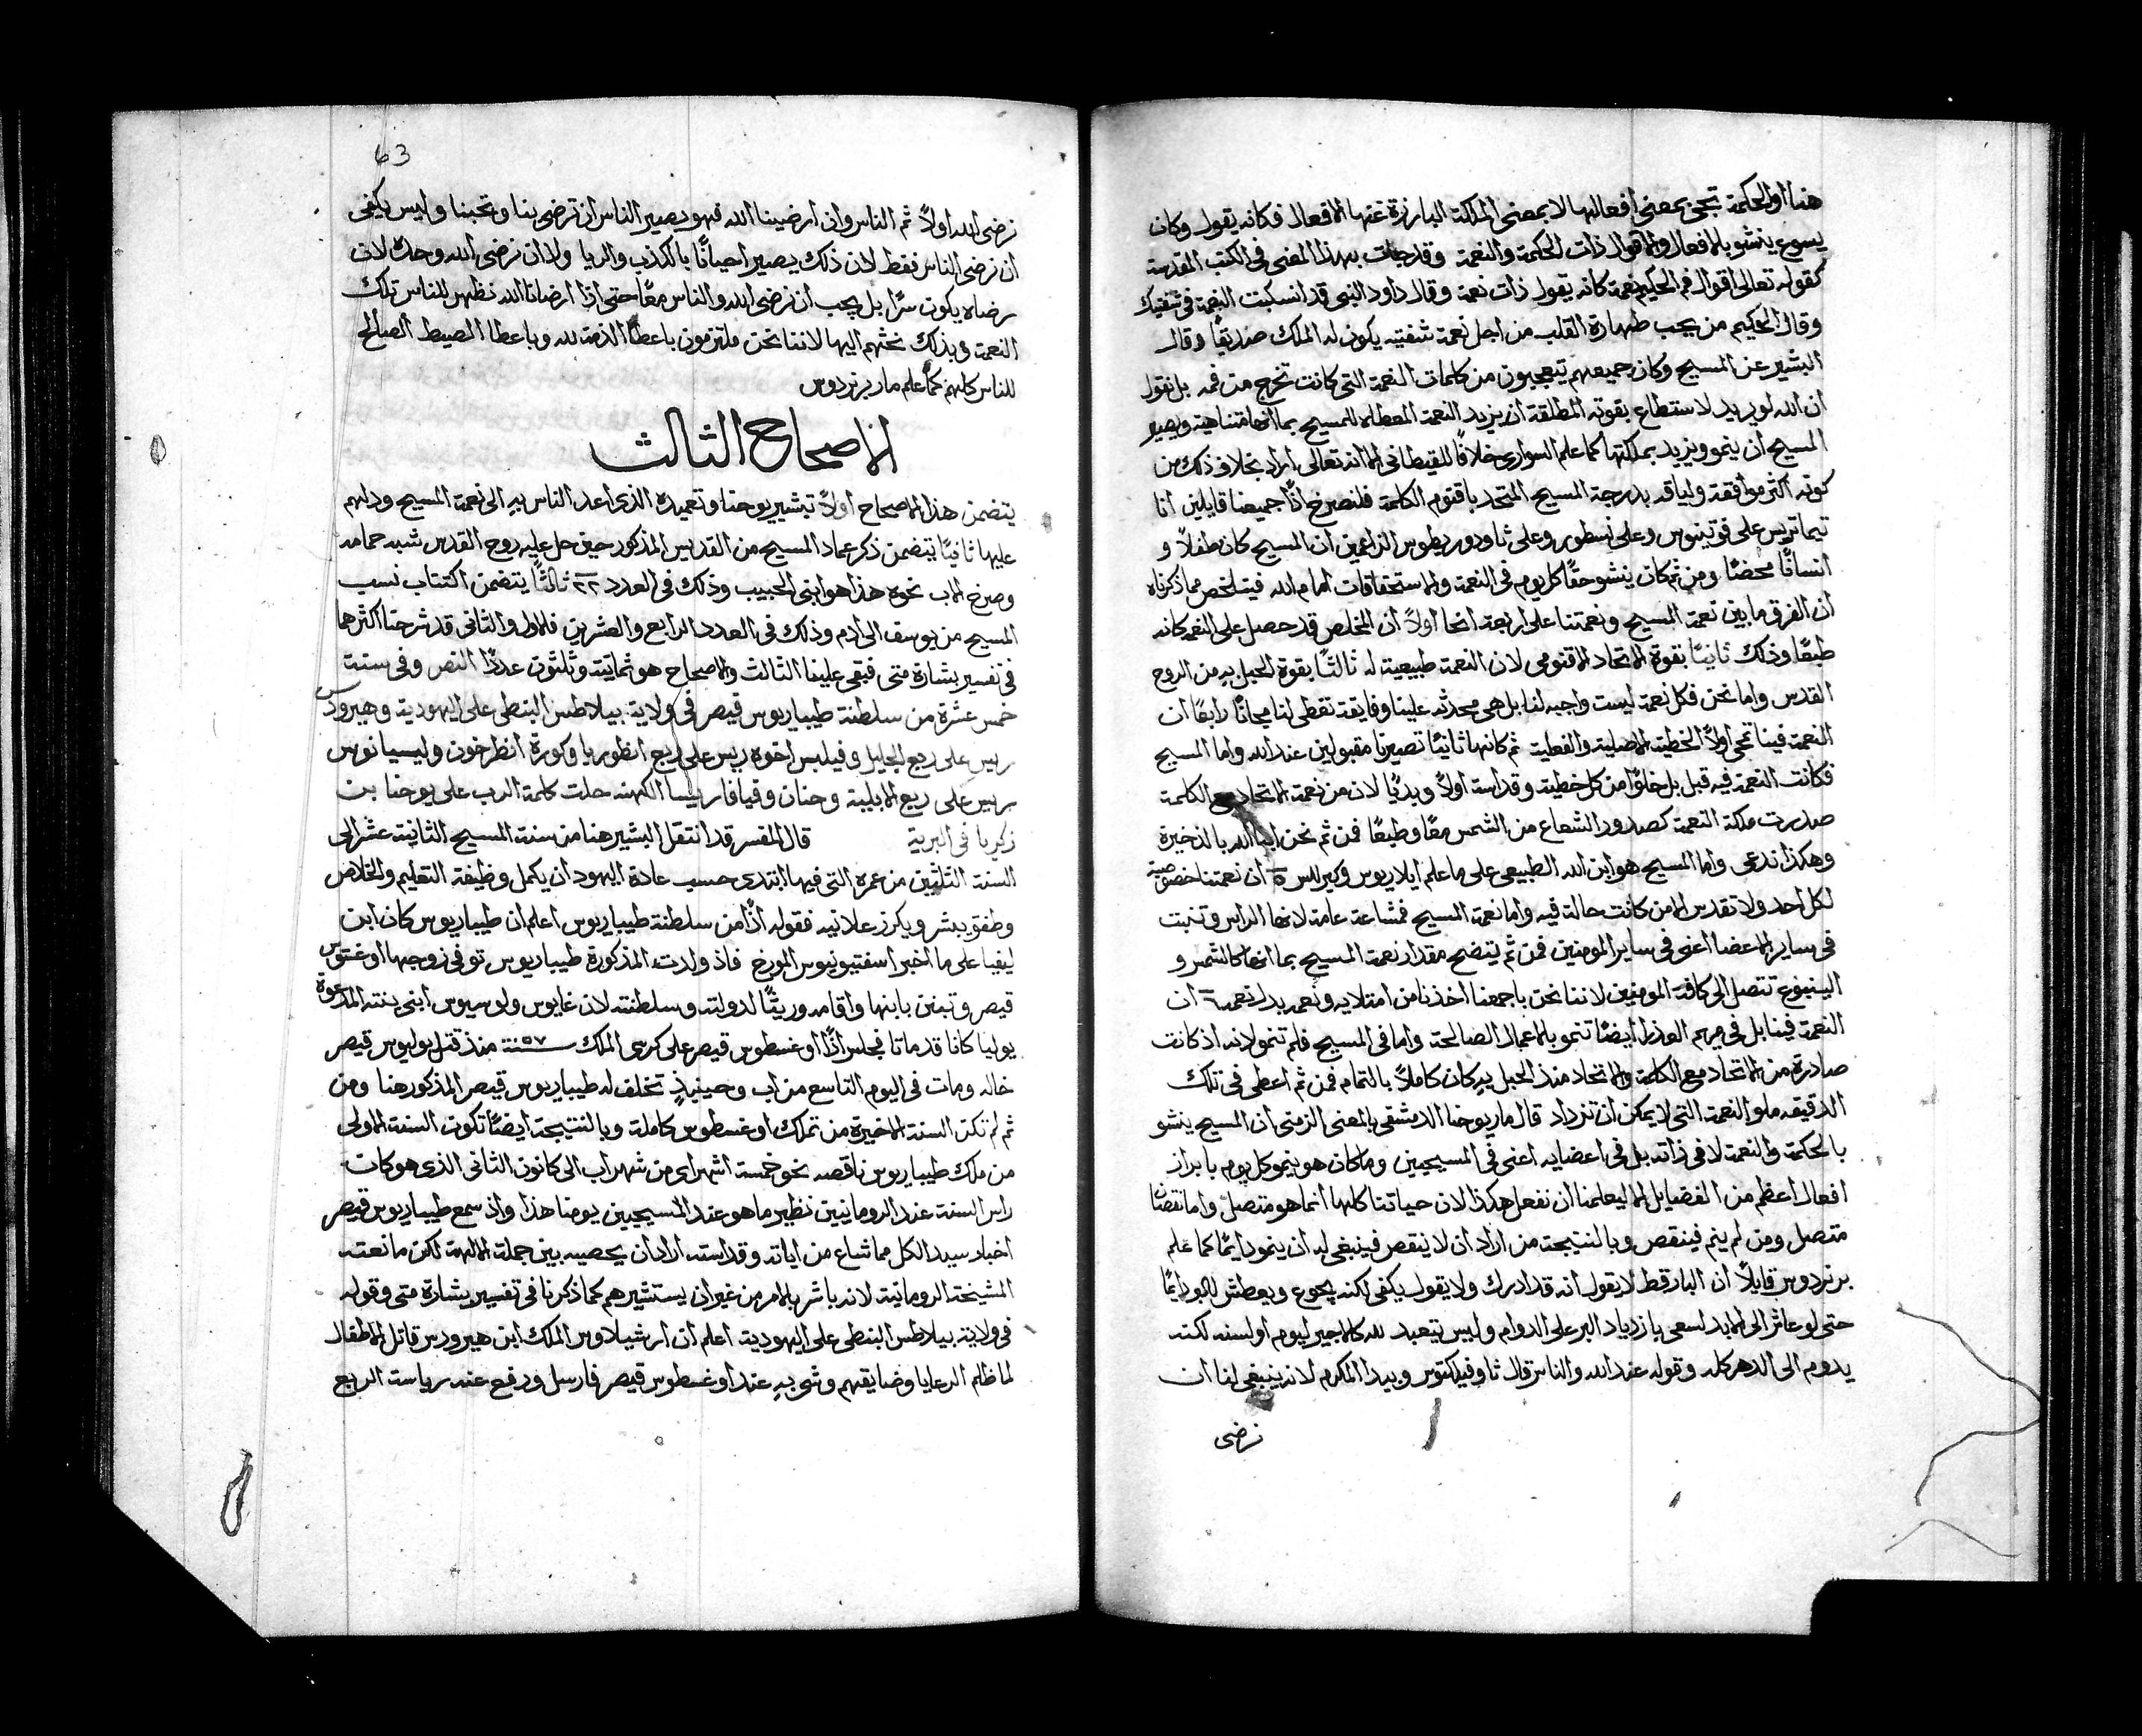 هنا او الحكمة تجي بمعنى افعالها لا بمعنى الملكة البارزة عنها الافعال فكانه يقول وكان
يسوع ينشو بالافعال والاقوال ذات الحكمة والنعمة وقد جات بهذا المعنى في الكتب المقدسة
كقوله تعالى اقوال فم الحكيم نعمة كانه يقول ذات نعمة وقال داود النبي قد انسكبت النعمة في شفتيك
وقال الحكيم من يحب طهارة القلب من اجل نعمة شفتيه يكون له الملك صديقًا وقال
البشير عن المسيح وكان جميعهم يتعجبون من كلمات النعمة التي كانت تخرج من فمه بل نقول
ان الله لو يريد لاستطاع بقوته المطلقة ان يزيد النعمة المعطاه للمسيح بما انها متناهية ويصير
المسيح ان ينمو ويزيد بملكتها كما علم السوارى خلافًا للقيطانى الا انه تعالى اراد بخلاف ذلك من
كونه اكثر موافقة ولياقه بدرجة المسيح المتحد باقنوم الكلمة فلنصرخ اذًا جميعنا قايلين انا
تيماتريس على فوتينوس وعلى نسطور وعلى ثاودوريطوس الزاعمين ان المسيح كان طفلاً و
انسانًا محضًا ومن ثم كان ينشو حقًا كل يوم في النعمة والاستحقاقات امام الله فيتلخص مما ذكرناه
ان الفرق ما بين نعمة المسيح ونعمتنا على اربعة انحا اولاً ان المخلص قد حصل على النعمه كانه
طبعًا وذلك ثانيًا بقوة الاتحاد الاقنومى لان النعمة طبيعية له ثالثًا بقوة الحبل به من الروح
القدس واما نحن فكل نعمة ليست واجبه لنا بل هي محدثه علينا وفايقة تعطى لنا مجانًا رابعًا ان
النعمة فينا تمحى اولاً الخطية الاصلية والفعلية ثم كانها ثانيًا تصيرنا مقبولين عند الله واما المسيح
فكانت النعمة فيه قبل بل خلوًا من كل خطية وقداسة اولاً وبديًا لان من نعمة الاتحاد مع الكلمة
صدرت ملكة النعمة كصدور الشعاع من الشمس معًا وطبعًا فمن ثم نحن ابنا الله بالذخيرة
وهكذا ندعى واما المسيح هو ابن الله الطبيعي على ما علم ايلاريوس وكيرللس ة ان نعمتنا خصوصية
لكل احد ولا تقدس الا من كانت حالة فيه واما نعمة المسيح فمشاعة عامة لانها الراس وتنبت
في ساير الاعضا اعنى في ساير المومنين فمن ثم يتضح مقدار نعمة المسيح بما انها كالشمس و
الينبوع تتصل الى كافة المومنين لاننا نحن باجمعنا اخذنا من امتلايه ونعمه بدل نعمه ان
النعمة فينا بل في مريم العذرا ايضًا تنمو بالاعمال الصالحة واما في المسيح فلم تنمو لانه اذ كانت
صادرة من الاتحاد مع الكلمة والاتحاد منذ الحبل به كان كاملاً بالتمام فمن ثم اعطى في تلك
الدقيقه ملو النعمة التي لا يمكن ان تزداد قال مار يوحنا الدمشقي بالمعنى الزمني ان المسيح ينشو
بالحكمة والنعمة لا في ذاته بل في اعضايه اعنى في المسيحيين وما كان هو ينمو كل يوم بابراز
افعال اعظم من الفضايل الا ليعلمنا ان نفعل هكذا لان حياتنا كلها انما هو متصل واما نقصنا
متصل ومن لم ينم فينقص وبالنتيجة من اراد ان لا ينقص فينبغي له ان ينمو دايمًا كما علم
برنردوس قايلاً ان البار قط لا يقول انه قد ادرك ولا يقول يكفى لكنه يجوع ويعطش للبر دايمًا
حتى لو عاش الى الابد لسعى بازدياد البر على الدوام وليس يتعبد لله كالاجير ليوم او لسنه لكنه
يدوم الى الدهر كله وقوله عند الله والناس قال ثاوفيلكتوس وبيدا المكرم لانه ينبغي لنا ان
نرضى
63
نرضى الله اولاً ثم الناس وان ارضينا الله فهو يصير الناس ان ترضى بنا وتحبنا وليس يكفى
ان نرضى الناس فقط لان ذلك يصير احيانًا بالكذب والريا ولا ان نرضى الله وحده لان
رضاه يكون سرًا بل يجب ان نرضى الله والناس معًا حتى اذا ارضانا الله نظهر للناس تلك
النعمة وبذلك نحثهم اليها لاننا نحن ملتزمون باعطا الذمة لله وباعطا الصيط الصالح
للناس كلهم كما علم مار برنردوس
الاصحاح الثالث
يتضمن هذا الاصحاح اولاً تبشير يوحنا وتعميده الذي اعد الناس به الى نعمة المسيح ودلهم
عليها ثانيًا يتضمن ذكر عماد المسيح من القديس المذكور حين حل عليه روح القدس شبه حمامه
وصرخ الاب نحوه هذا هو ابني الحبيب وذلك في العدد ٢٢ ثالثًا يتضمن اكتتاب نسب
المسيح من يوسف الى ادم وذلك في العدد الرابع والعشرين فالاول والثاني قد شرحنا اكثرها
في تفسير بشارة متى فبقى علينا الثالث والاصحاح هو ثمانية وثلثون عددًا النص وفي سنة
خمس عشرة من سلطنة طيباريوس قيصر في ولاية بيلاطس البنطى على اليهودية وهيرودس
ريس على ربع الجليل وفيلبس اخوه ريس على ربع انطوريا وكورة انطرخون وليسيانوس
ريس على ربع الابلية وحنان وقيافا رييسا الكهنه حلت كلمة الرب على يوحنا بن
زكريا في البرية قال المفسر قد انتقل البشير هنا من سنة المسيح الثانية عشر الى
السنة الثلثين من عمره التي فيها ابتدى حسب عادة اليهود ان يكمل وظيفة التعليم والخلاص
وطفق يبشر ويكرز علانيه فقوله اذًا من سلطنة طيباريوس اعلم ان طيباريوس كان ابن
ليفيا على ما اخبر اسفتيونيوس المورخ فاذ ولدت المذكورة طيباريوس توفى زوجها اوغستوس
قيصر وتبنى بابنها واقامه وريثًا لدولته وسلطنته لان غايوس ولوسيوس ابنى بنته المدعوة
يوليا كانا قد ماتا فجلس اذًا اوغسطوس قيصر على كرسى الملك سنة ٥٧ منذ قتل يوليوس قيصر
خاله ومات في اليوم التاسع من اب وحينيذٍ تخلف له طيباريوس قيصر المذكور هنا ومن
ثم لم تكن السنة الاخيرة من تملك اوغسطوس كاملة وبالنتيجة ايضًا تكون السنة الاولى
من ملك طيباريوس ناقصه نحو خمسة اشهر اى من شهر اب الى كانون الثاني الذي هو كان
راس السنة عند الرومانيين نظير ما هو عند المسيحيين يومنا هذا واذ سمع طيباريوس قيصر
اخبار سيد الكل مما شاع من اياته وقداسته اراد ان يحصيه بين جملة الالهة لكن مانعته
المشيخة الرومانية لانه باشر بالامر من غير ان يستشيرهم كما ذكرنا في تفسير بشارة متى وقوله
في ولاية بيلاطس البنطى على اليهودية اعلم ان ارشيلاوس الملك ابن هيرودس قاتل الاطفال
لما ظلم الرعايا وضايقهم وشى به عند اوغسطوس قيصر فارسل ورفع عنه رياسة الربع